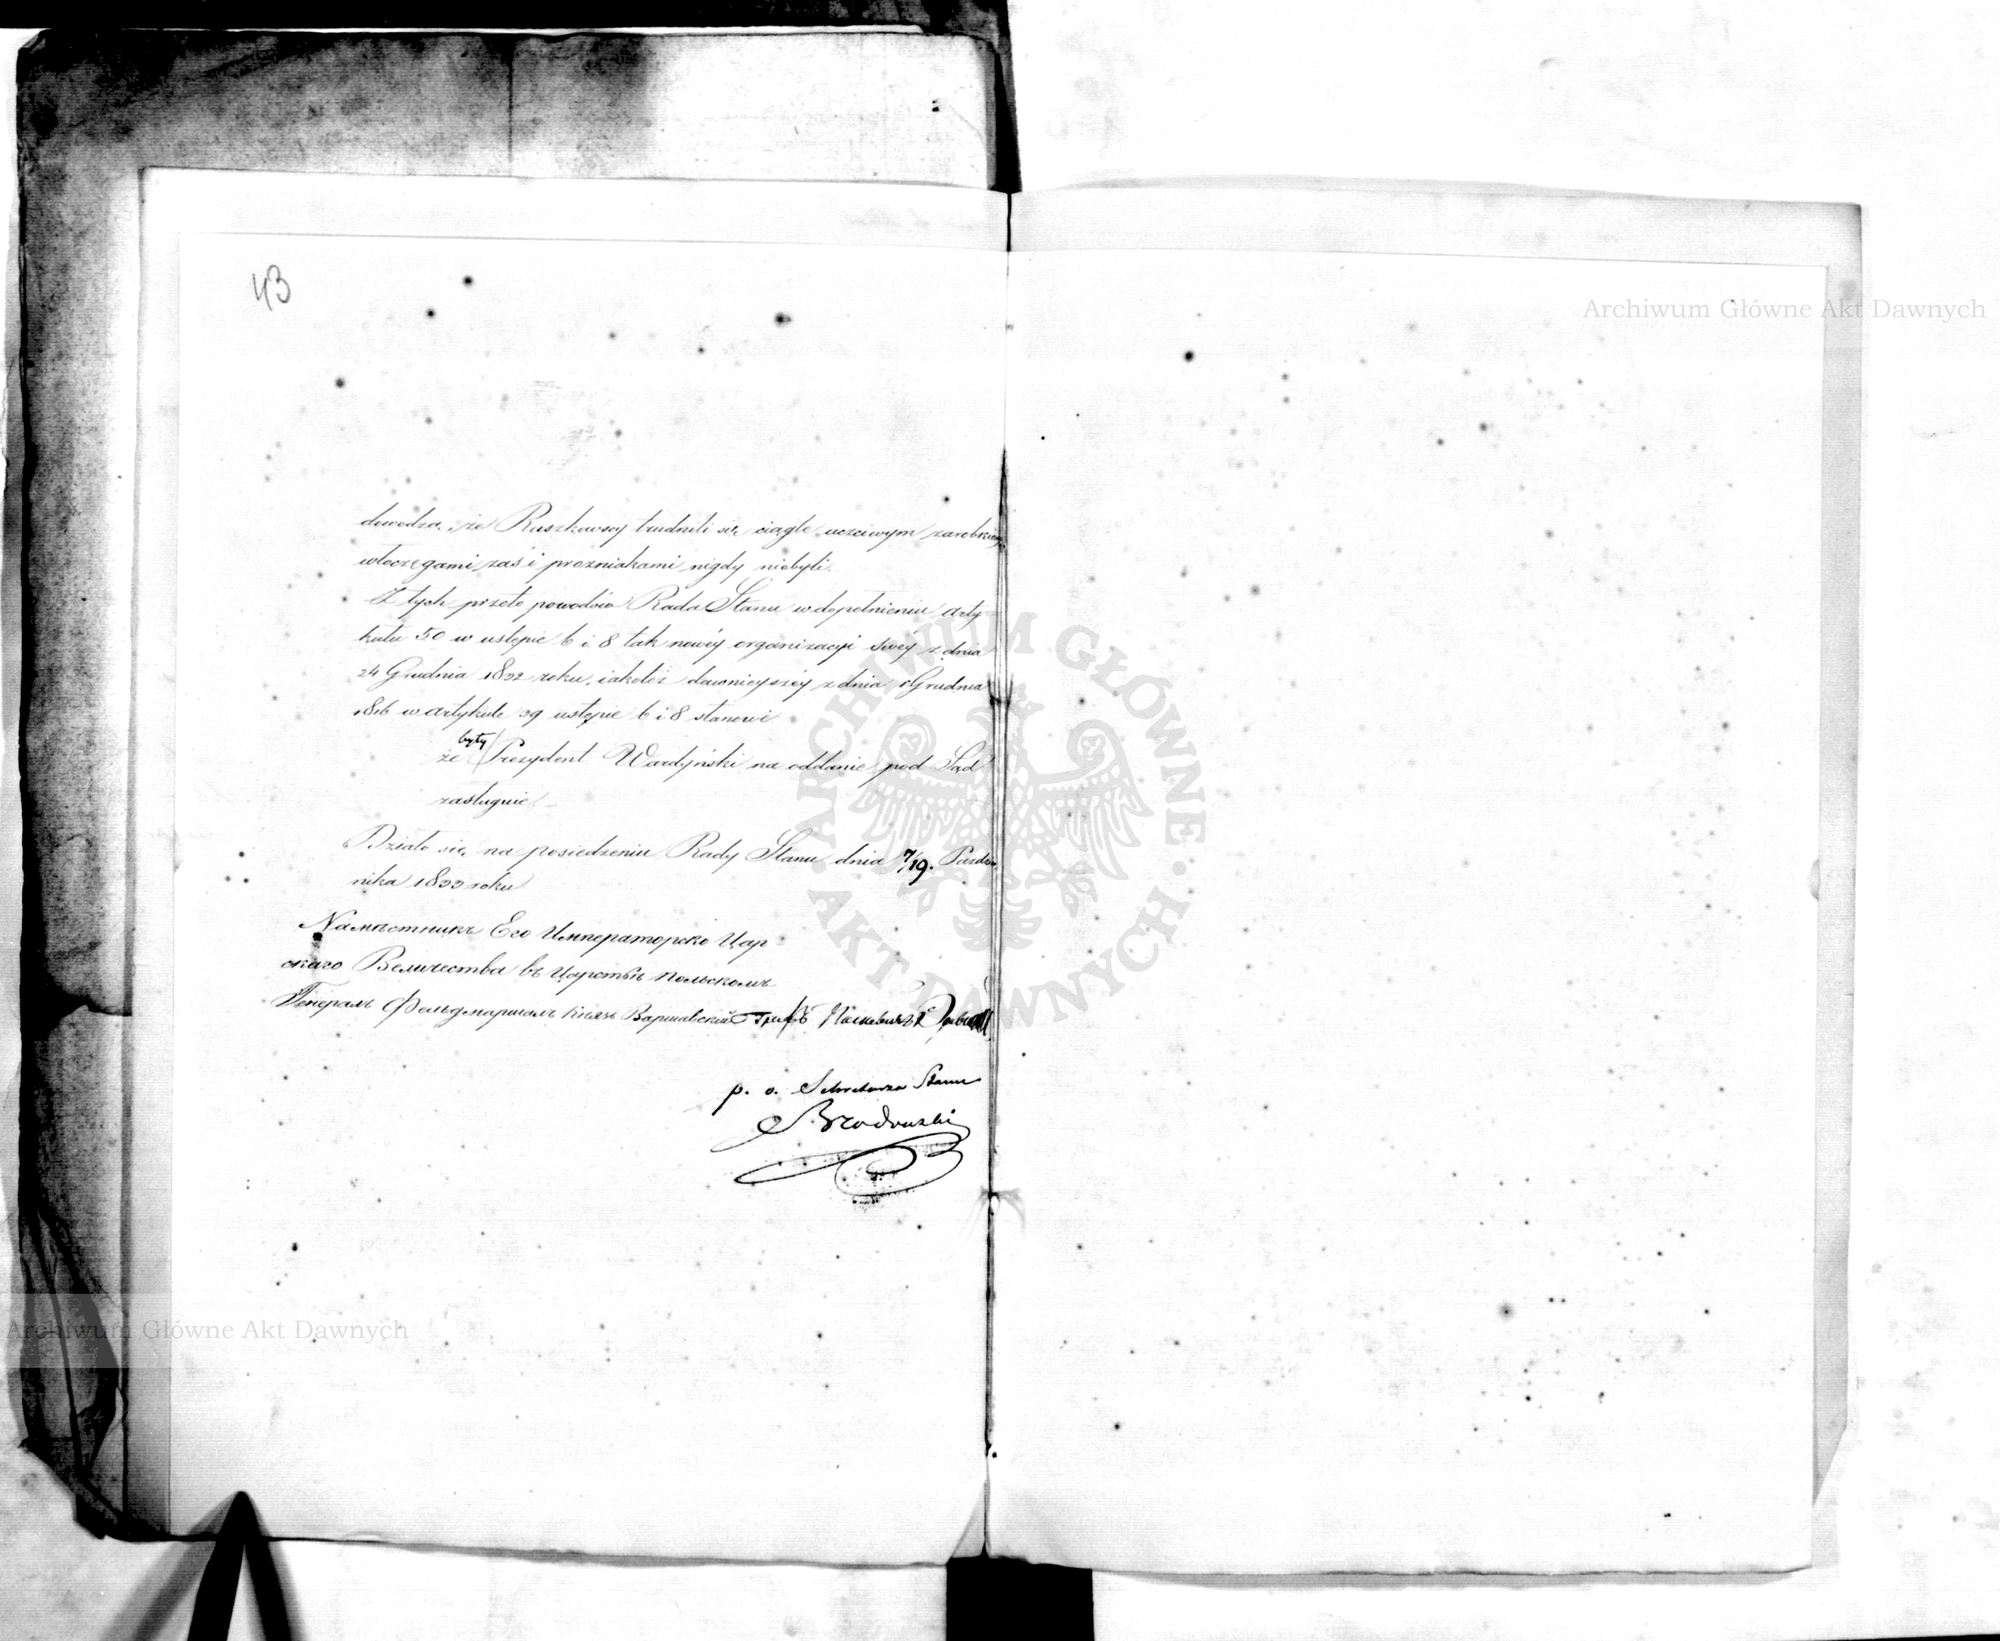 43
Archiwum Główne Akt Dawnych
dowodzą, że Raszkowscy trudnili się ciągle uczciwym zarobkiem
włóczęgami zaś i prozniakami nigdy niebyli.
Z tych przeto powodów Rada Stanu w dopełnieniu arty
kułu 50 w ustępie 6 i 8 tak nowéy organizacyi swéy z dnia
24 Grudnia 1832 roku, iakoteż dawnieyszéy z dnia 1 Grudnia
1816 w artykule 39 ustępie 6 i 8 stanowi
że były Prezydent Wardyński na oddanie pod Sąd
zasługuie.
Działo się na posiedzeniu Rady Stanu dnia 7/19. Paździer
nika 1833 roku
Намѣстникъ Его Императорско Цар
скаго Величества въ Царствѣ Польскомъ
Генералъ Фельдмаршалъ Князь Варшавский Графъ Паскевичъ
p. o. Sekretarza Stanu
Brodowski
ARCHIWUM GŁÓWNE · AKT DAWNYCH ·
Archiwum Główne Akt Dawnych